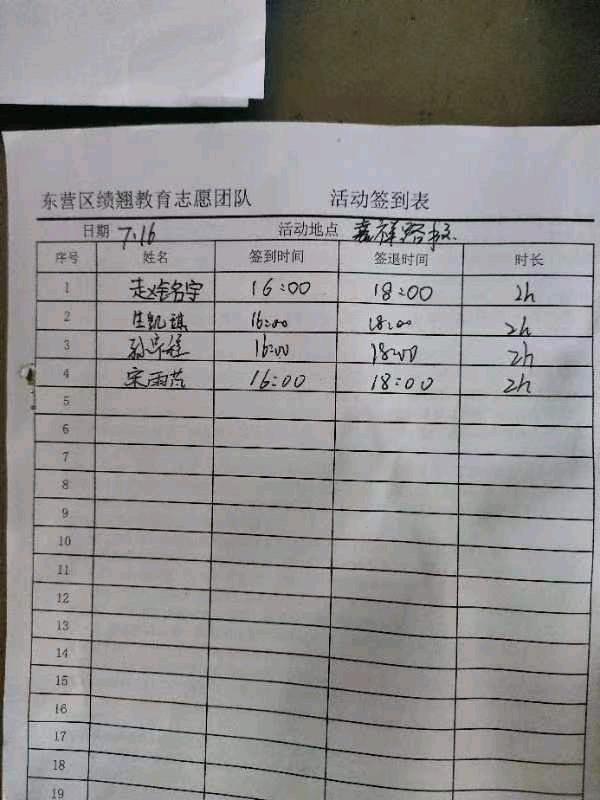 东营区绩翘教育志愿团队 活动签到表
日期 7.16 活动地点 嘉祥路校
序号 姓名 签到时间 签退时间 时长
1 16:00 18:00 2h
2 凯琪 16:00 18:00 2h
3 孙 16:00 18:00 2h
4 宋雨芯 16:00 18:00 2h
5
6
7
8
9
10
11
12
13
14
15
16
17
18
19